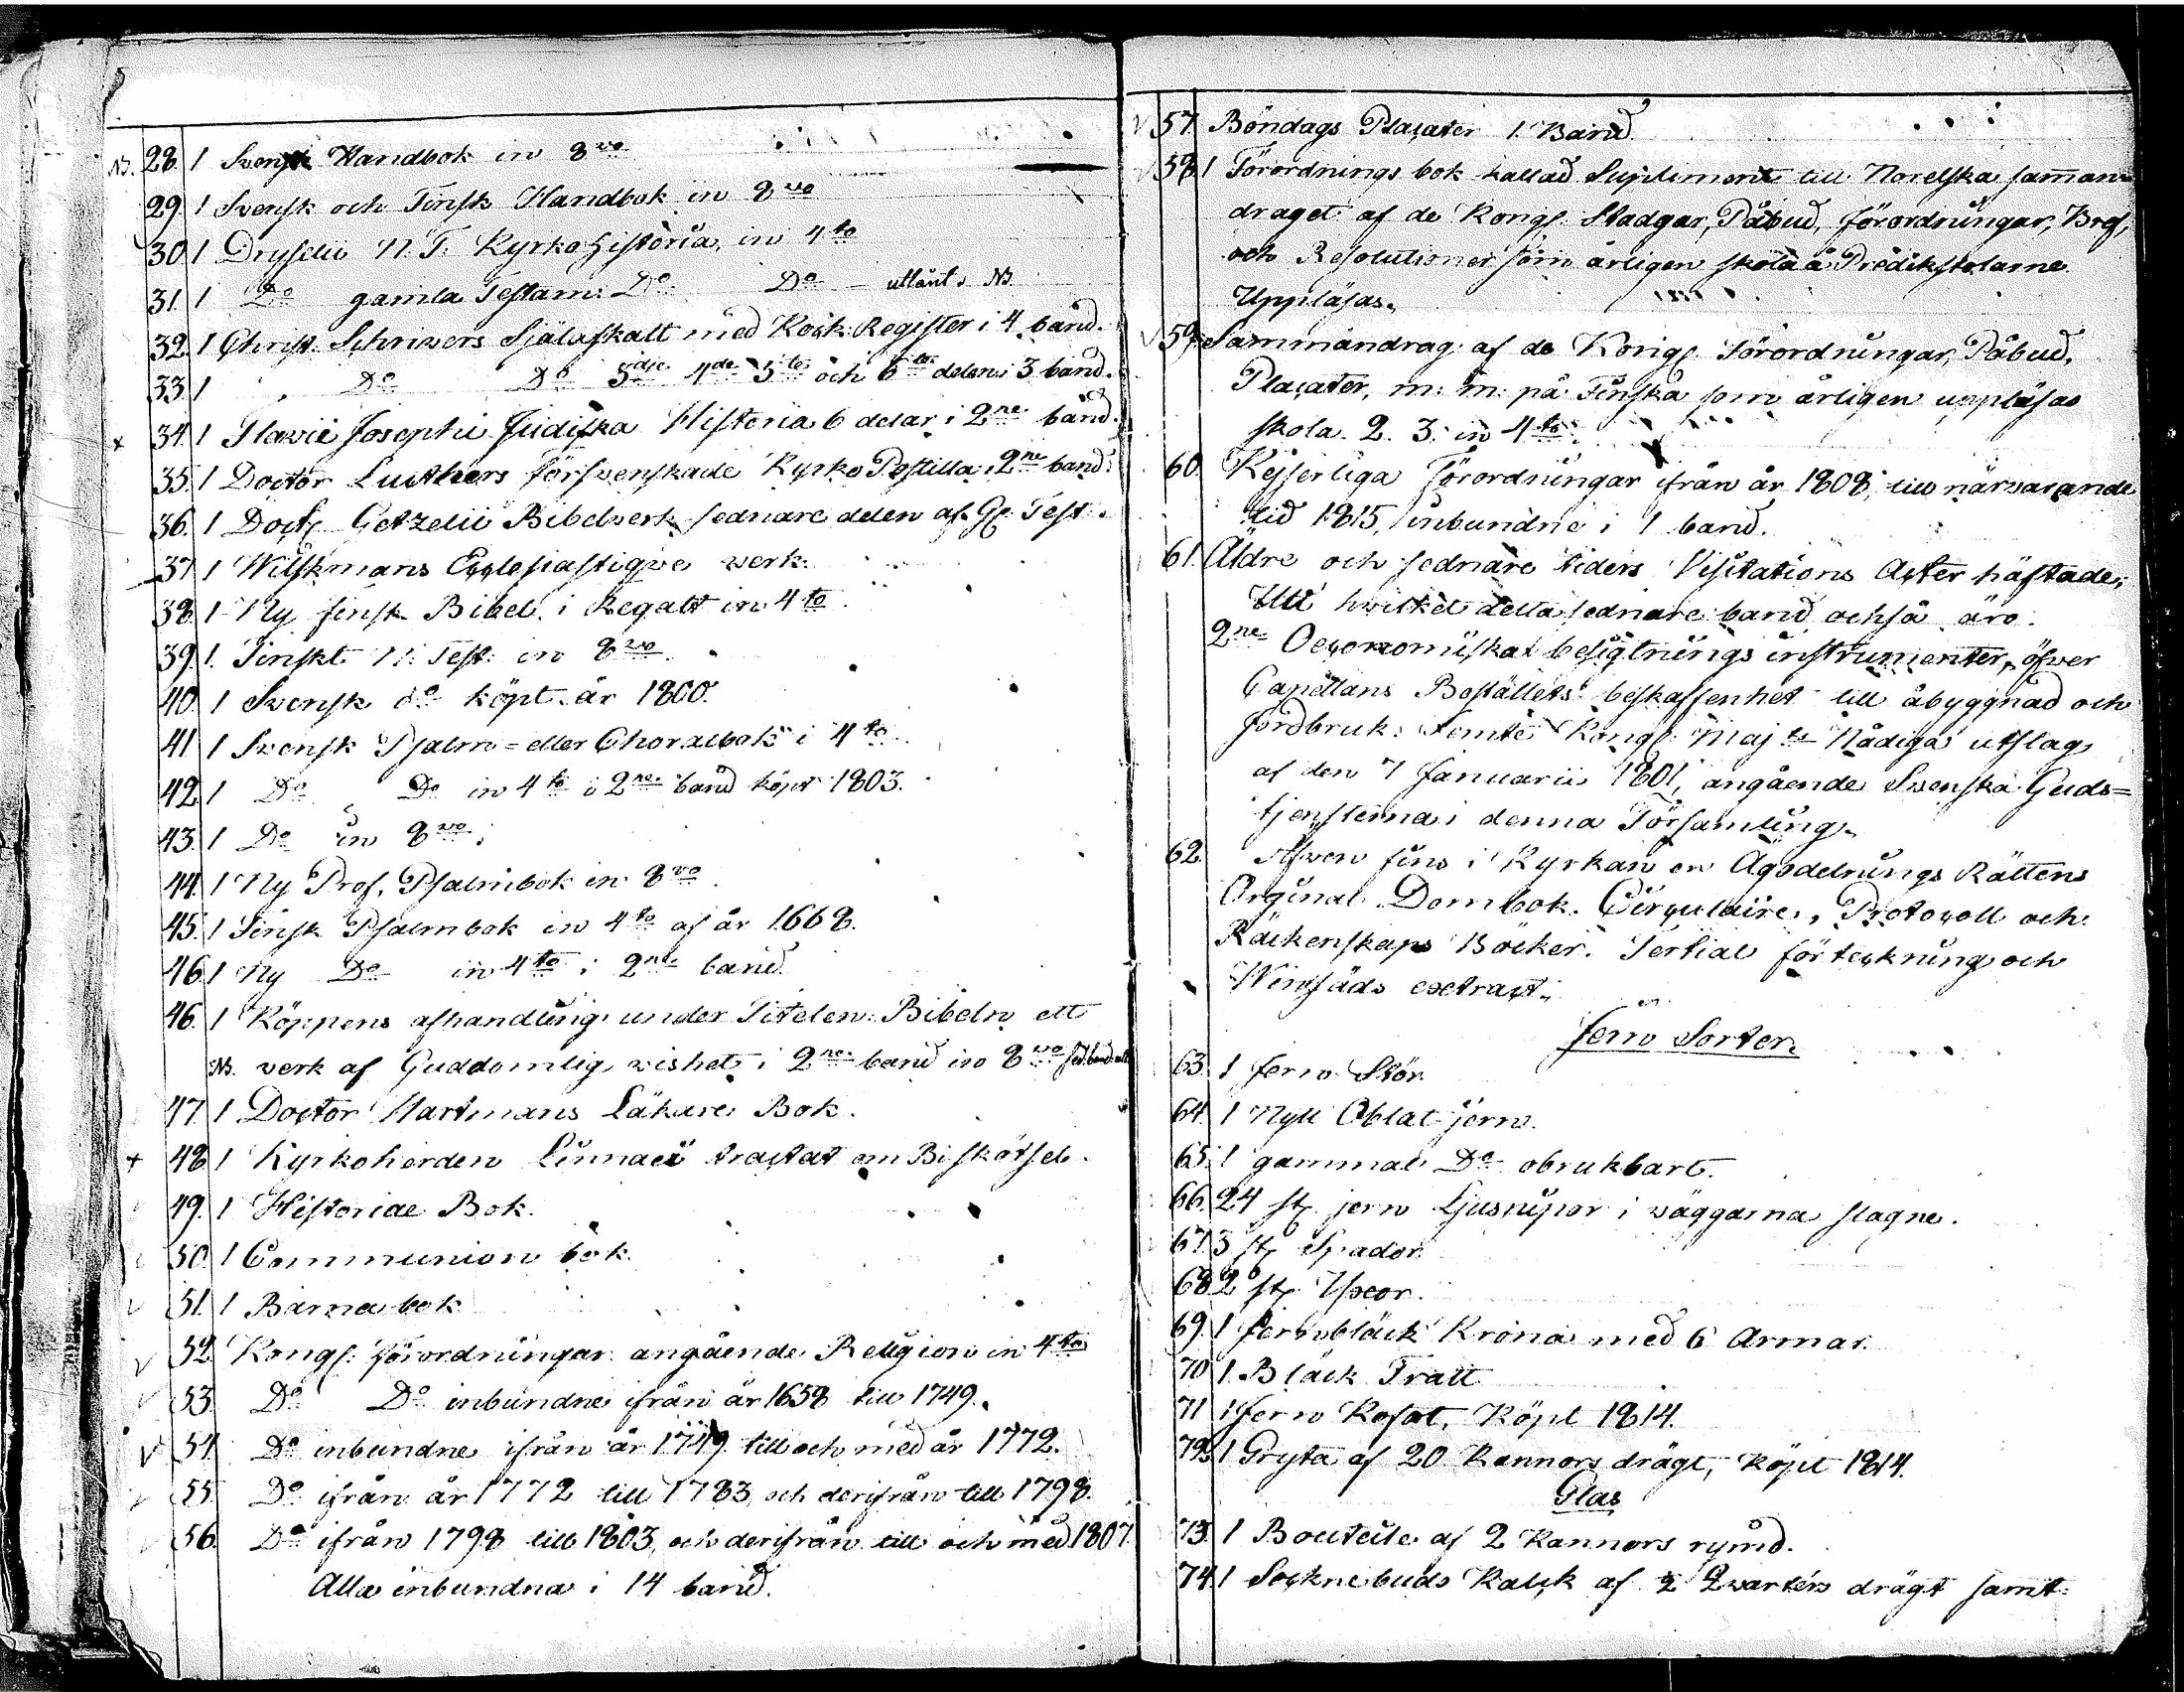 NB. 28. 1 Svensk Handbok in 8vo
29. 1 Svensk och Finsk Handbok in 8vo
30. 1 Dryselii N. T. Kyrkohistoria, in 4to
31. 1 Do gamla Testam: Do Do utlånt. NB.
32. 1 Christ. Schrivers Själaskatt med Koik: Register i 4 band.
33. 1 Do Do 3dje 4de 5te och 6te delen i 3 band.
+ 34. 1 Flavii Josephi Judiska Historia 6 delar i 2ne band.
35. 1 Doctor Luthers försvenskade Kyrko Postilla i 2ne band.
36. 1 Doct Getzelii Bibelverk sednare delen af G: Test.
37. 1 Wilskmans Ecclesiastique verk.
38. 1 Ny finsk Bibel i Regalt in 4to
39. 1. Finskt N: Test: in 8vo.
40. 1 Svensk do köpt år 1800.
41 1 Svensk Psalm- eller Choralbok i 4to
42. 1 Do Do in 4to i 2ne band köpt 1803.
43. 1 Do in 8vo.
44. 1 Ny Prof. Psalmbok in 8vo
45. 1 Finsk Psalmbok in 4to af år 1668.
46. 1 Ny Do in 4to i 2ne band
46. 1 Köppens afhandling under Titelen: Bibeln ett
NB. verk af Guddomlig vishet i 2ne band in 8vo
47. 1 Doctor Hartmans Läkare Bok.
+ 48. 1 Kyrkoherden Linnaei tractat om Biskötsel.
49. 1 Historiae Bok.
50. 1 Communion bok
51. 1 Barna bok
52. Kongl. förordningar angående Religion in 4to
53. Do Do inbundne ifrån år 1658 till 1749.
54. Do inbundne ifrån år 1749 till och med år 1772.
55. Do ifrån år 1772 till 1783, och derifrån till 1798.
56. Do ifrån 1798 till 1803, och derifrån till och med 1807.
Alla inbundna i 14 band.
57. Böndags Placater 1. Band
58. 1 Förordnings bok kallad Supliment till Norelska samman-
draget af de Kongl. Stadgar, Påbud, förordningar, Bref,
och Resolutioner som årligen skola å Prediksto­larne
Uppläsas.
59. Sammandrag af de Kongl. Förordningar, Påbud,
Placater, m: m: på Finska som årligen uppläsas
skola. 2. 3. in 4to.
60. Kejserliga Förordningar ifrån år 1808, till närvarande
tid 1815, inbundne i 1 band.
61. Äldre och sednare tiders Visitations Acter häftade;
Uti hvilket detta sednare band också äro
2ne Oeconomiska besigtnings instrumenter, öfver
Capellans Boställets beskaffenhet till åbyggnad och
Jordbruk: samt Kongl. Maj ts Nådiga utslag
af den 7 Januarii 1801, angående Svenska Guds-
tjensterna i denna Församling.
62. Äfven fins i Kyrkan en Ägodelnings Rättens
Orginal Dombok. Circulaire, Protocoll och
Räckenskaps Böcker. Tertial förteckning och
extract.
Jern Sorter.
63. 1 Jern Stör
64. 1 Nytt Oblat jern.
65. 1 gammal Do obrukbart.
66. 24 st. jern Ljusnipor i väggarna slagne.
67. 3 st. Spador.
68. 2 st. Yxor.
69. 1 Jernbläck Krona med 6 Armar.
70 1 Bläck Tratt
71 1 Jern Kofot, Köpt 1814.
72. 1 Gryta af 20 Kannors drägt, köpt 1814.
Glas
73. 1 Bouteile af 2 Kannors rymd.
74. 1 Socknebuds Kalck af 2 Qvarters drägt samt